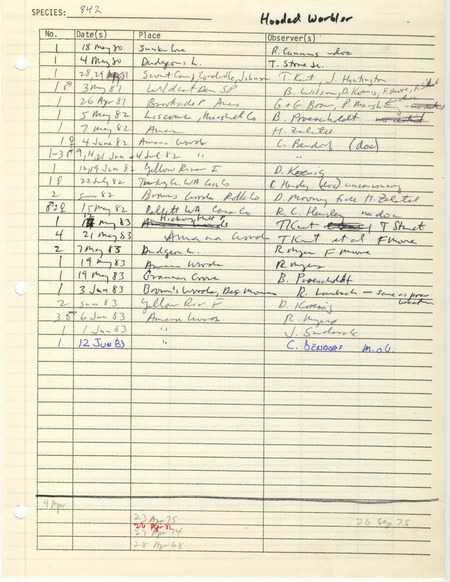 SPECIES: 842 Hooded Warbler
No. Date(s) Place Observer(s)
1 18 May 80 R. Cummins
1 4 May 80 Dudgeon L. T. Stone Jr.
1 28, 29 81 Scout Camp, Coralville, Johnson T Kent J. Huntington
1 3 May 81 Wildcat Den SP B. Wilson, D. Koenig, F Moore
1 26 Apr 81 Brookside P Ames
1 5 May 82 Liscomb, Marshall Co B. Proescholdt
1 7 May 82 Ames H. Zaletel
1 ♀ 4 June 82 Amana Woods C. Bendorf (doc)
9, 4, 21 Jun 4 Jul 82 "
1 Jun 82 Yellow River F D. Koenig
1 22 July 82
2 Jun 82 Brown's Woods Polk Co D. Mooney fide H. Zaletel
15 May 82 WA Cass Co no doc
1 May 83 Hickory Hill P T Kent T Staudt
4 21 May 83 Amana Woods T Kent et al F Moore
2 7 May 83 Dudgeon L. R Myers F Moore
1 19 May 83 Amana Woods R Myers
1 19 May 83 Grammer Grove B. Proescholdt
1 3 Jun 83 Brown's Woods, Des Moines
2 Jun 83 Yellow Riv F D. Koenig
3 6 Jun 83 Amana Woods R Myers
1 1 Jun 83 " J. Sandrock
1 12 JUN 83 C. BENDORF
4 Apr
27 Apr 75 26 Sep 75
26 Apr 81
27 Apr 74
28 Apr 68